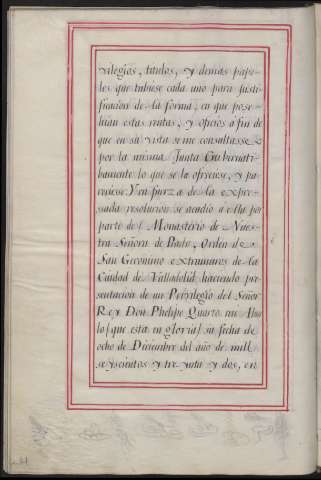 vilegios, titulos, y demas pape-
les que tubiese cada uno para justi-
ficacion de la forma, en que pose-
hian estas rentas, y oficios à fin de
que en su vista se me consultasse
por la misma Junta Gubernati-
bamente lo que se la ofreciese, y pa-
reciesse Y en fuerza de la expre-
ssada resolucion se acudio à ella por
parte del Monasterio de Nues-
tra Señora de Prado, Orden de
San Geronimo extramuros de la
Ciudad de Valladolid haciendo pre-
sentacion de un Privilegio del Señor
Rey Don Phelipe Quarto mi Abue
lo (que està en gloria) su fecha de
ocho de Diciembre del año de mill
seyscientos y treynta y dos, en